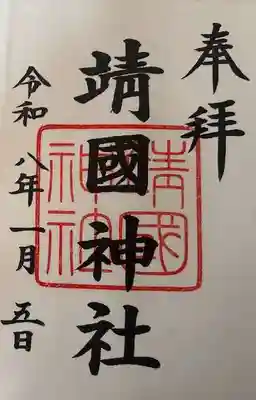 奉拝
靖國神社
靖國神社
令和八年一月五日